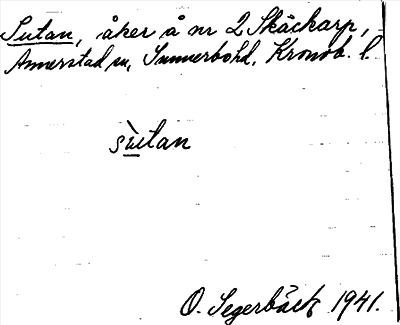 Sutan, åker å nr 2 Skäckarp,
Annerstad sn, Sunnerbohd. Kronob. l.
sùtan
O. Segerbäck 1941.